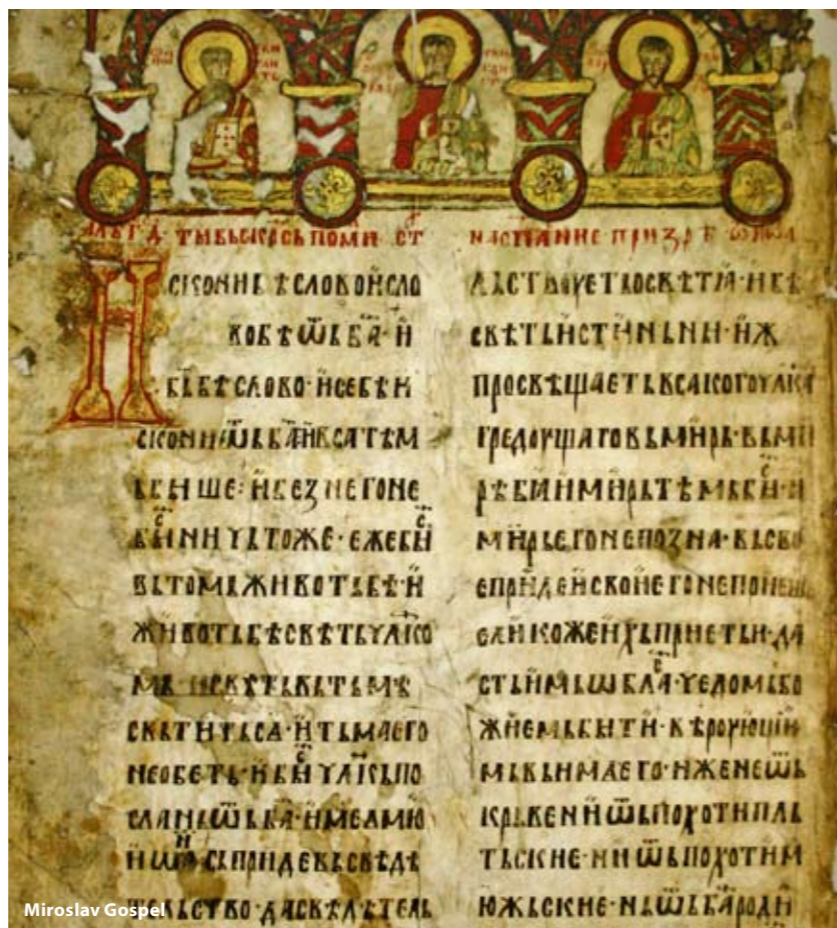 И
сконибѣсловоисло
вобѣѿьба҃·и
бь҃бѣсловоисебѣи
скониѿьба҃ивсатѣм
ьбыше·ибезнегоне
быничьтоже·ежебы
втомьживотьбѣ·и
животьбѣсвѣтьчл҃ко
мьисвѣтьвьтьмѣ
свьтитьса·итьмаего
необеть·ибычл҃кьпо
сланьѿьба҃·имеѥмю
сьпридевьсвѣдѣ
тельство·дасвѣдѣтель
свѣтьистиньни·иж
просвѣщаетьвсакогочл҃ка
гредоущаговьмирь·вьми
рѣбѣимирьтѣмьбы·и
мирьегонепозна·вьсво
епридеисвоиегонепоꙗше
еликожеихьприѥтьи·да
стьимьѡбла·чедомьбо
жиемьбыти·вѣроующи
мьвьимаего·иженеѿь
крьвениѿьпохотипль
тьскиеᲀниѿьпохотим
южьскиеᲀньѿьба҃роди
Miroslav Gospel